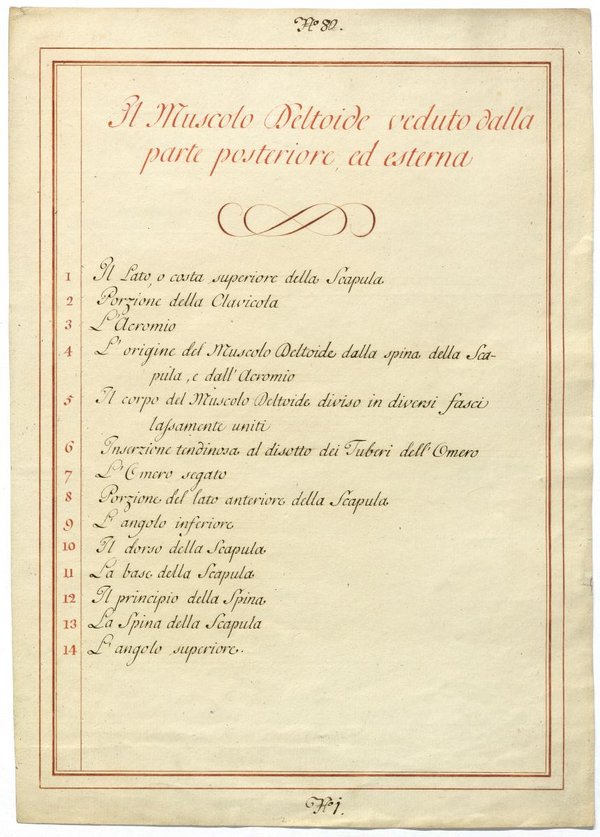 No 82.
Il Muscolo Deltoide veduto dalla
parte posteriore, ed esterna
1 Il Lato, o costa superiore della Scapula
2 Porzione della Clavicola
3 L'Acromio
4 L'origine del Muscolo Deltoide dalla spina della Sca-
pula, e dall'Acromio
5 Il corpo del Muscolo Deltoide diviso in diversi fasci
laſsamente uniti
6 Inserzione tendinosa al disotto dei Tuberi dell'Omero
7 L'Omero segato
8 Porzione del lato anteriore della Scapula
9 L'angolo inferiore
10 Il dorso della Scapula
11 La base della Scapula
12 Il principio della Spina
13 La Spina della Scapula
14 L'angolo superiore.
No 1.